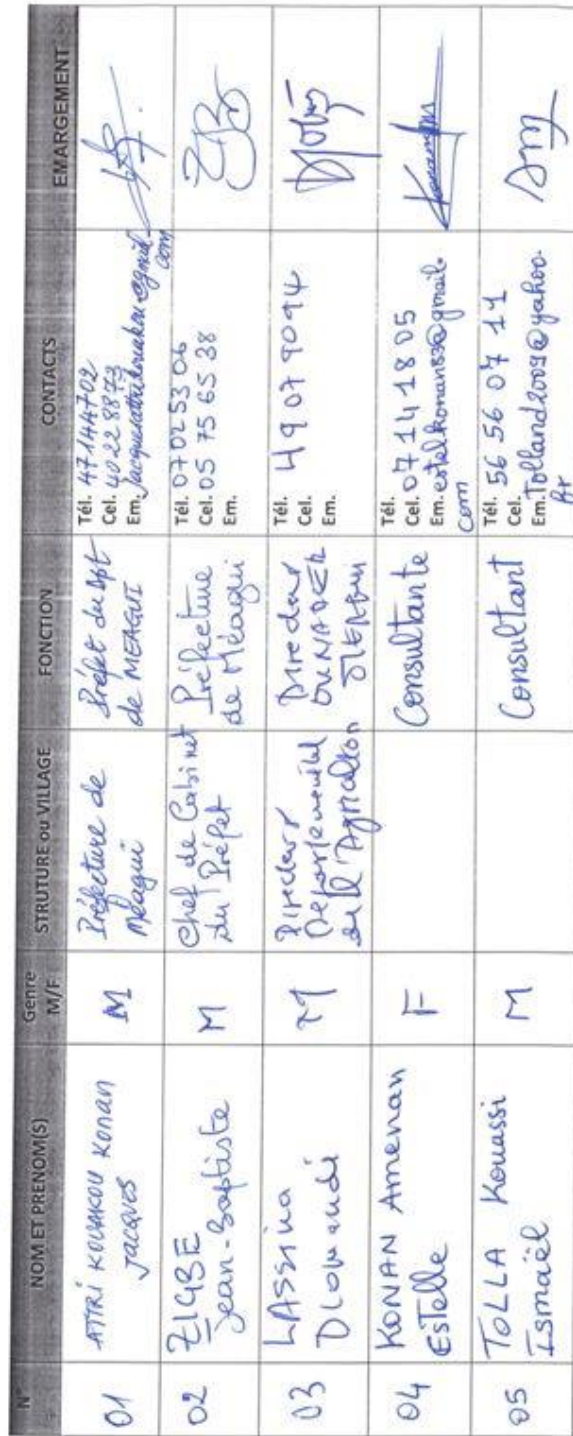 N° NOM ET PRENOM(S) Genre M/F STRUTURE ou VILLAGE FONCTION CONTACTS EMARGEMENT
01
ATTRI KOUAKOU Konan
Jacques
M
Préfecture de
Méagui
Préfet du Dpt
de MEAGUI
Tél. 47144702
Cel. 40228873
Em. Jacquesattrikouakou@gmail.
com
02
ZIGBE
Jean-Baptiste
M
Chef de Cabinet
du Préfet
Préfecture
de Méagui
Tél. 07025306
Cel. 05 75 65 38
Em.
03
LASSina
Diomandé
M
Directeur
Départemental
de l'Agriculture
Directeur
Tél. 49079094
Cel.
Em.
04
KONAN Amenan
Estelle
F
Consultante
Tél.
Cel. 07141805
Em. estelkonan83@gmail.
com
05
TOLLA Kouassi
Ismaël
M
Consultant
Tél. 56 56 07 11
Cel.
Em. Tolland2009@yahoo.
fr